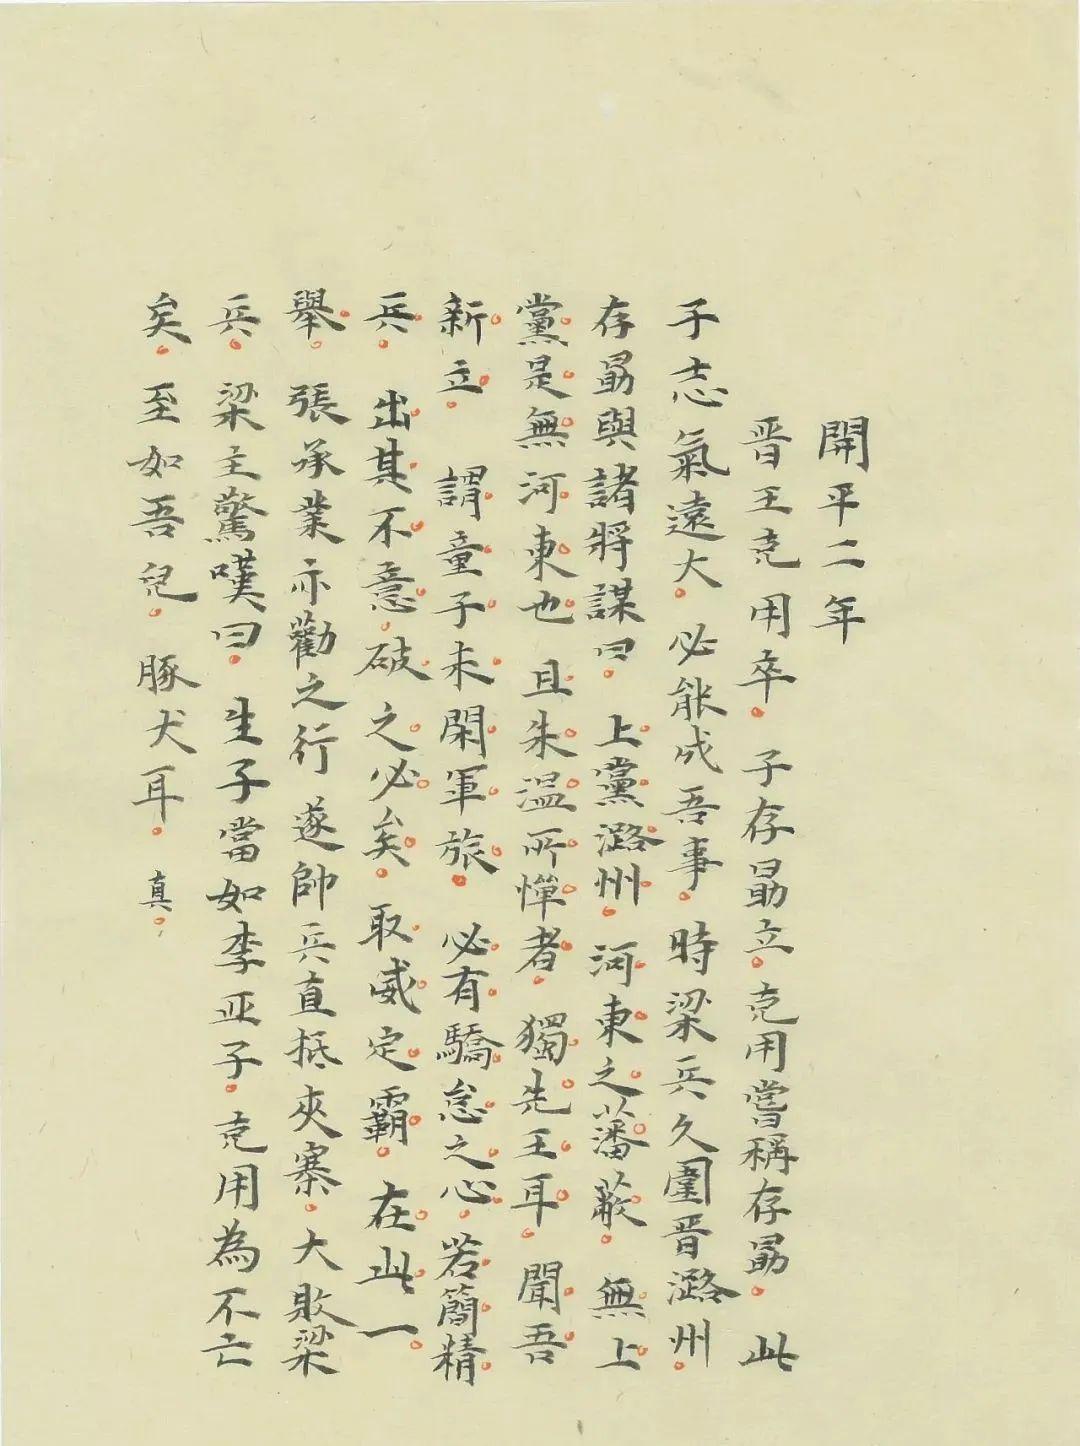 開平二年
晋王克用卒。子存勗立。克用嘗稱存勗。此
子志氣遠大。必能成吾事。時梁兵久圍晋潞州。
存勗與諸將謀曰。上黨潞州。河東之藩蔽。無上
黨是無河東也。且朱温所憚者。獨先王耳。聞吾
新立。謂童子未閑軍旅。必有驕怠之心。若簡精
兵。出其不意。破之必矣。取威定霸。在此一
舉。張承業亦勸之行。遂帥兵直抵夾寨。大敗梁
兵。梁主驚嘆曰。生子當如李亚子。克用為不亡
矣。至如吾兒。豚犬耳。真。